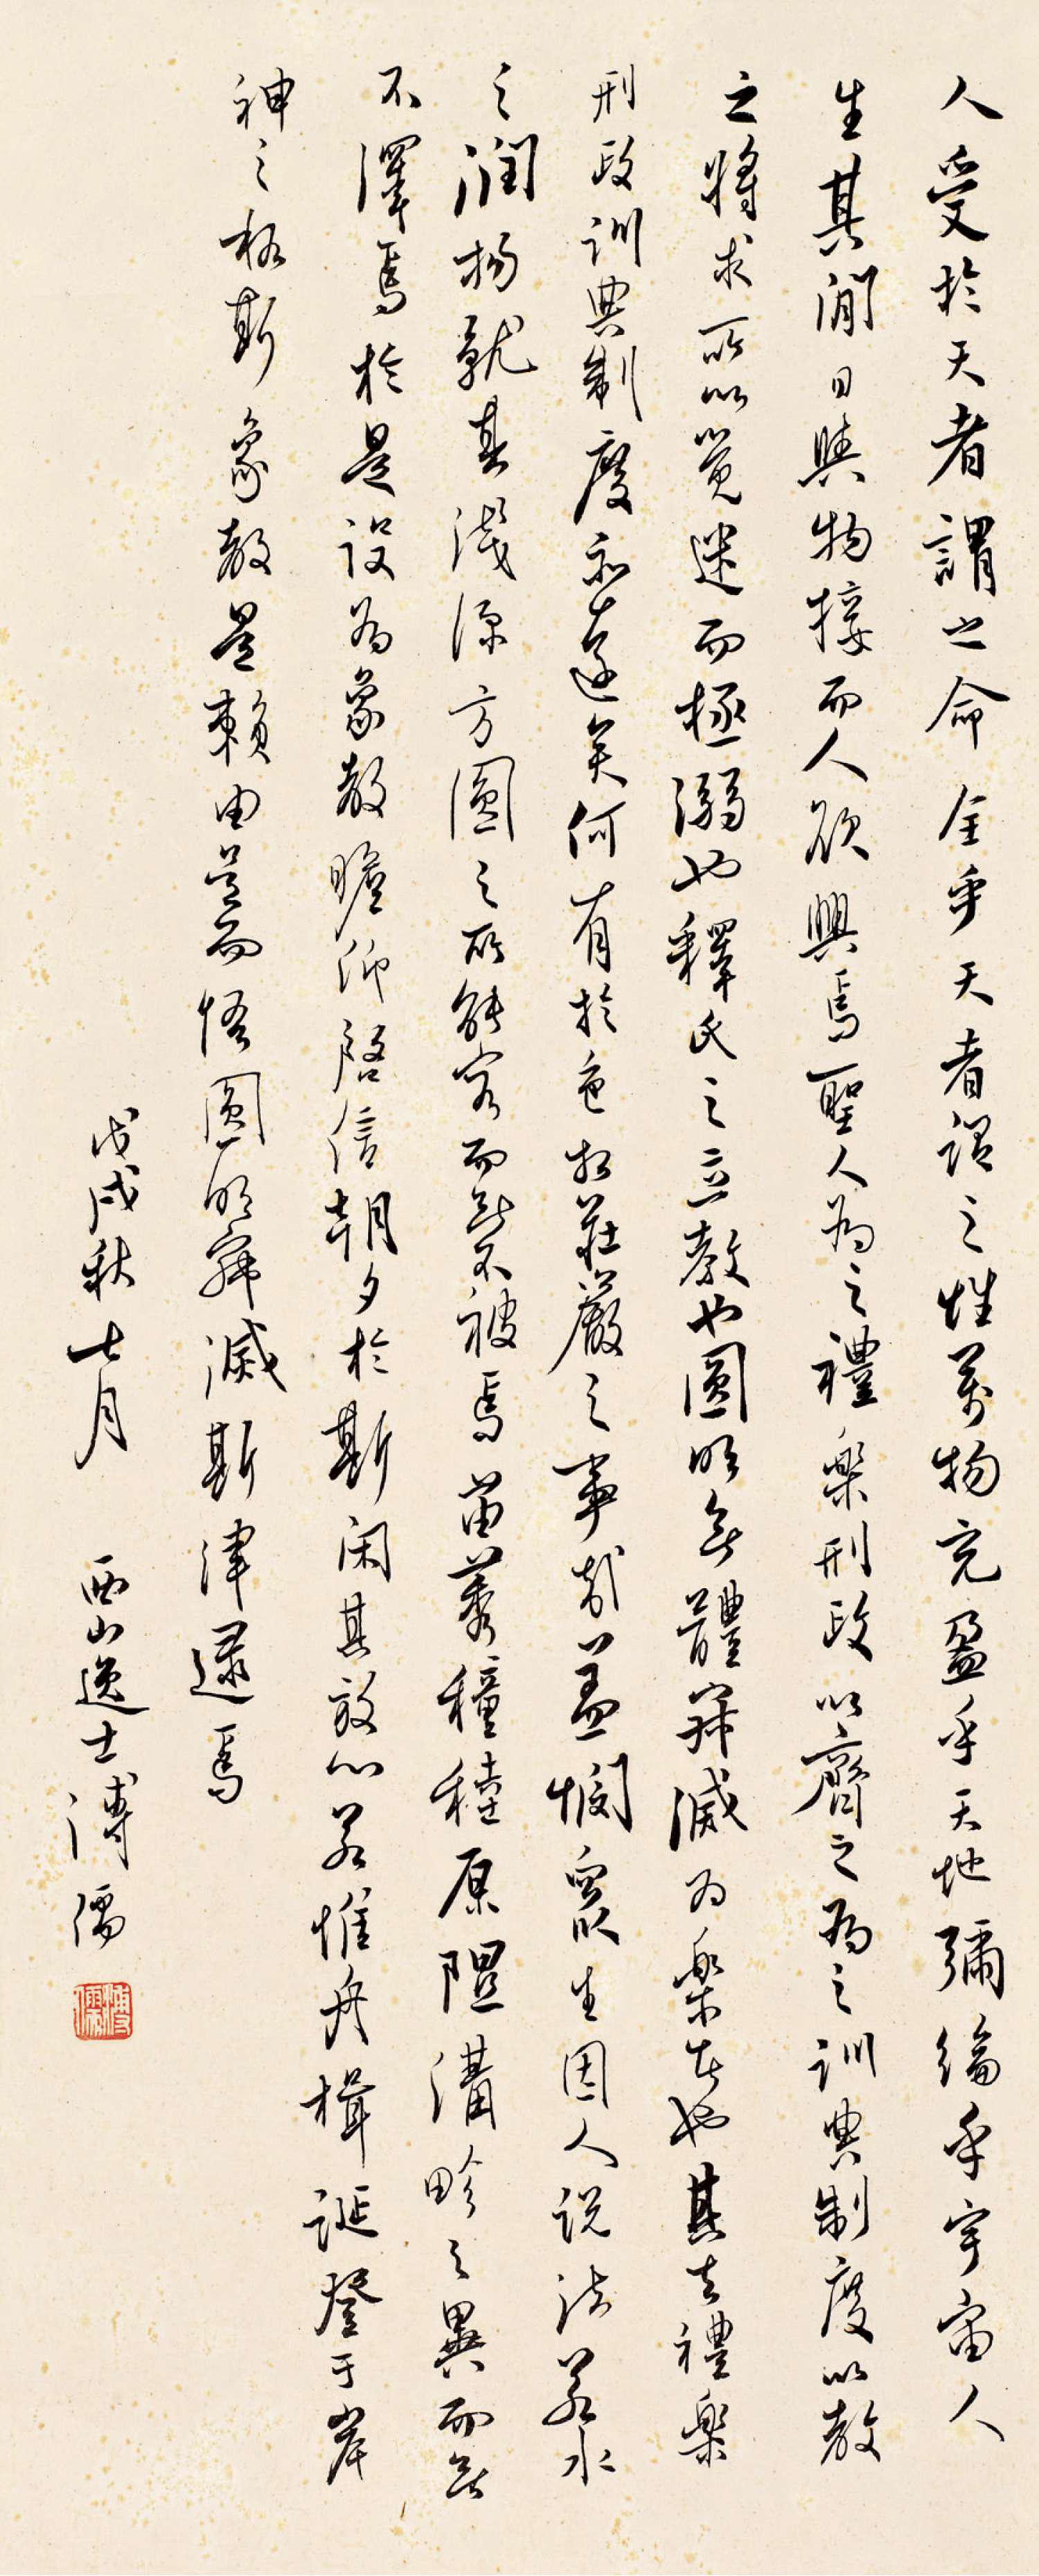 人受於天者謂之命全乎天者謂之性萬物充盈乎天地彌綸乎宇宙人
生其間日與物接而人欲興焉聖人為之禮樂刑政以齊之為之訓典制度以教
之將求所以覺迷而極溺也釋氏之立教也圓明無體寂滅為樂者也其去禮樂
刑政訓典制度亦遠矣何有於色相莊嚴之事哉蓋憫眾生因人說法若水
之潤物就其淺深方圓之所能容而無不被焉苗莠穜稑原隰溝畛之異而無
不澤焉於是設為象教瞻仰啟信朝夕於斯閑其放心若惟舟楫誕登于岸
神之格斯象教是賴由茲而悟圓明寂滅斯津逮焉
戊戌秋七月 西山逸士溥儒
溥儒